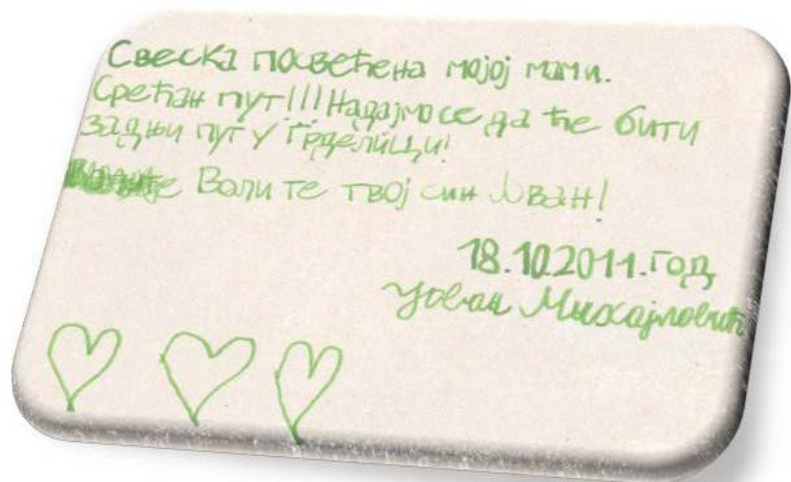 Свеска посвећена мојој мами.
Срећан пут!!! Надајмо се да ће бити
задњи пут у Грделици!
Воли те твој син Јован!
18.10.2011.год
Јован Михајловић